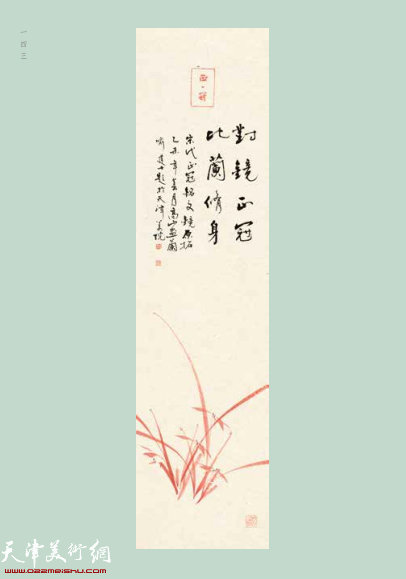 一四三
正冠
對鏡正冠
比蘭脩身
宋代正冠銘文鏡原拓
乙未年春月高山畫蘭
喻建十題於天津美院
天津美術網
www.022meishu.com